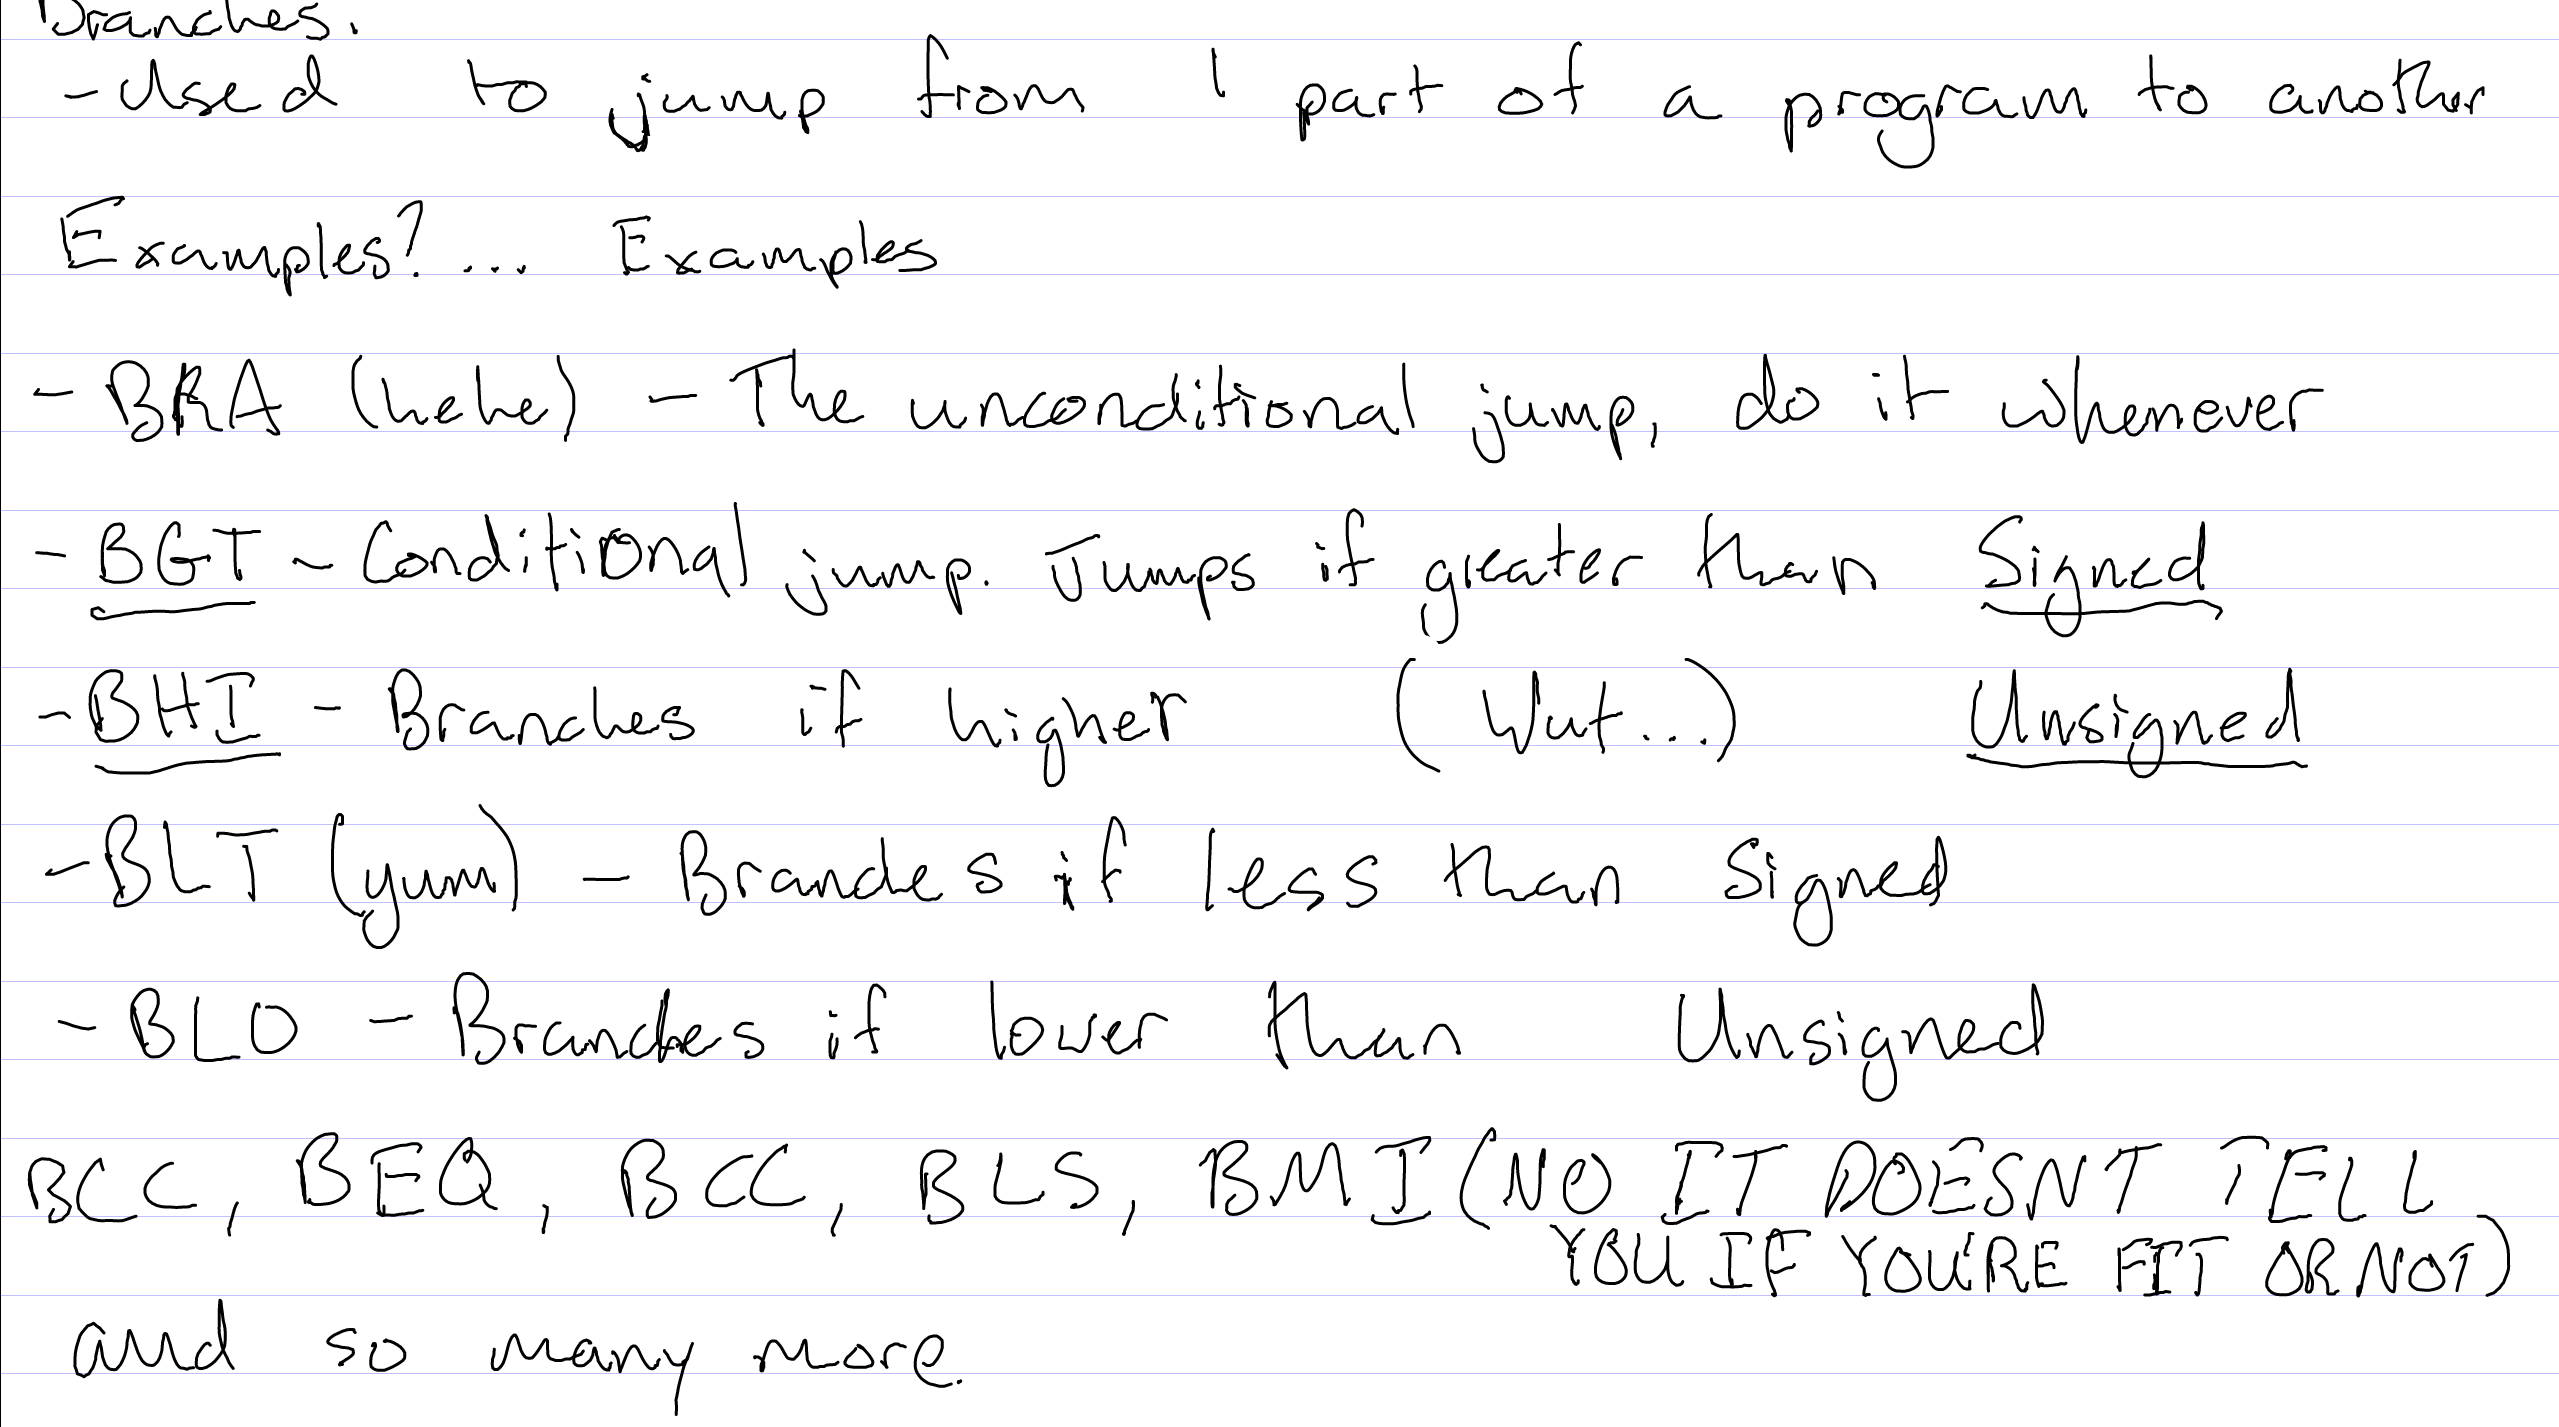 Branches.
- Used to jump from 1 part of a program to another
Examples?... Examples
- BRA (hehe) - The unconditional jump, do it whenever
- BGT - Conditional jump. Jumps if greater than Signed
- BHI - Branches if higher (Wut...) Unsigned
- BLT (yum) - Branches if less than Signed
- BLO - Branches if lower than Unsigned
BCC, BEQ, BCC, BLS, BMI (NO IT DOESNT TELL
YOU IF YOU'RE FIT OR NOT)
and so many more.